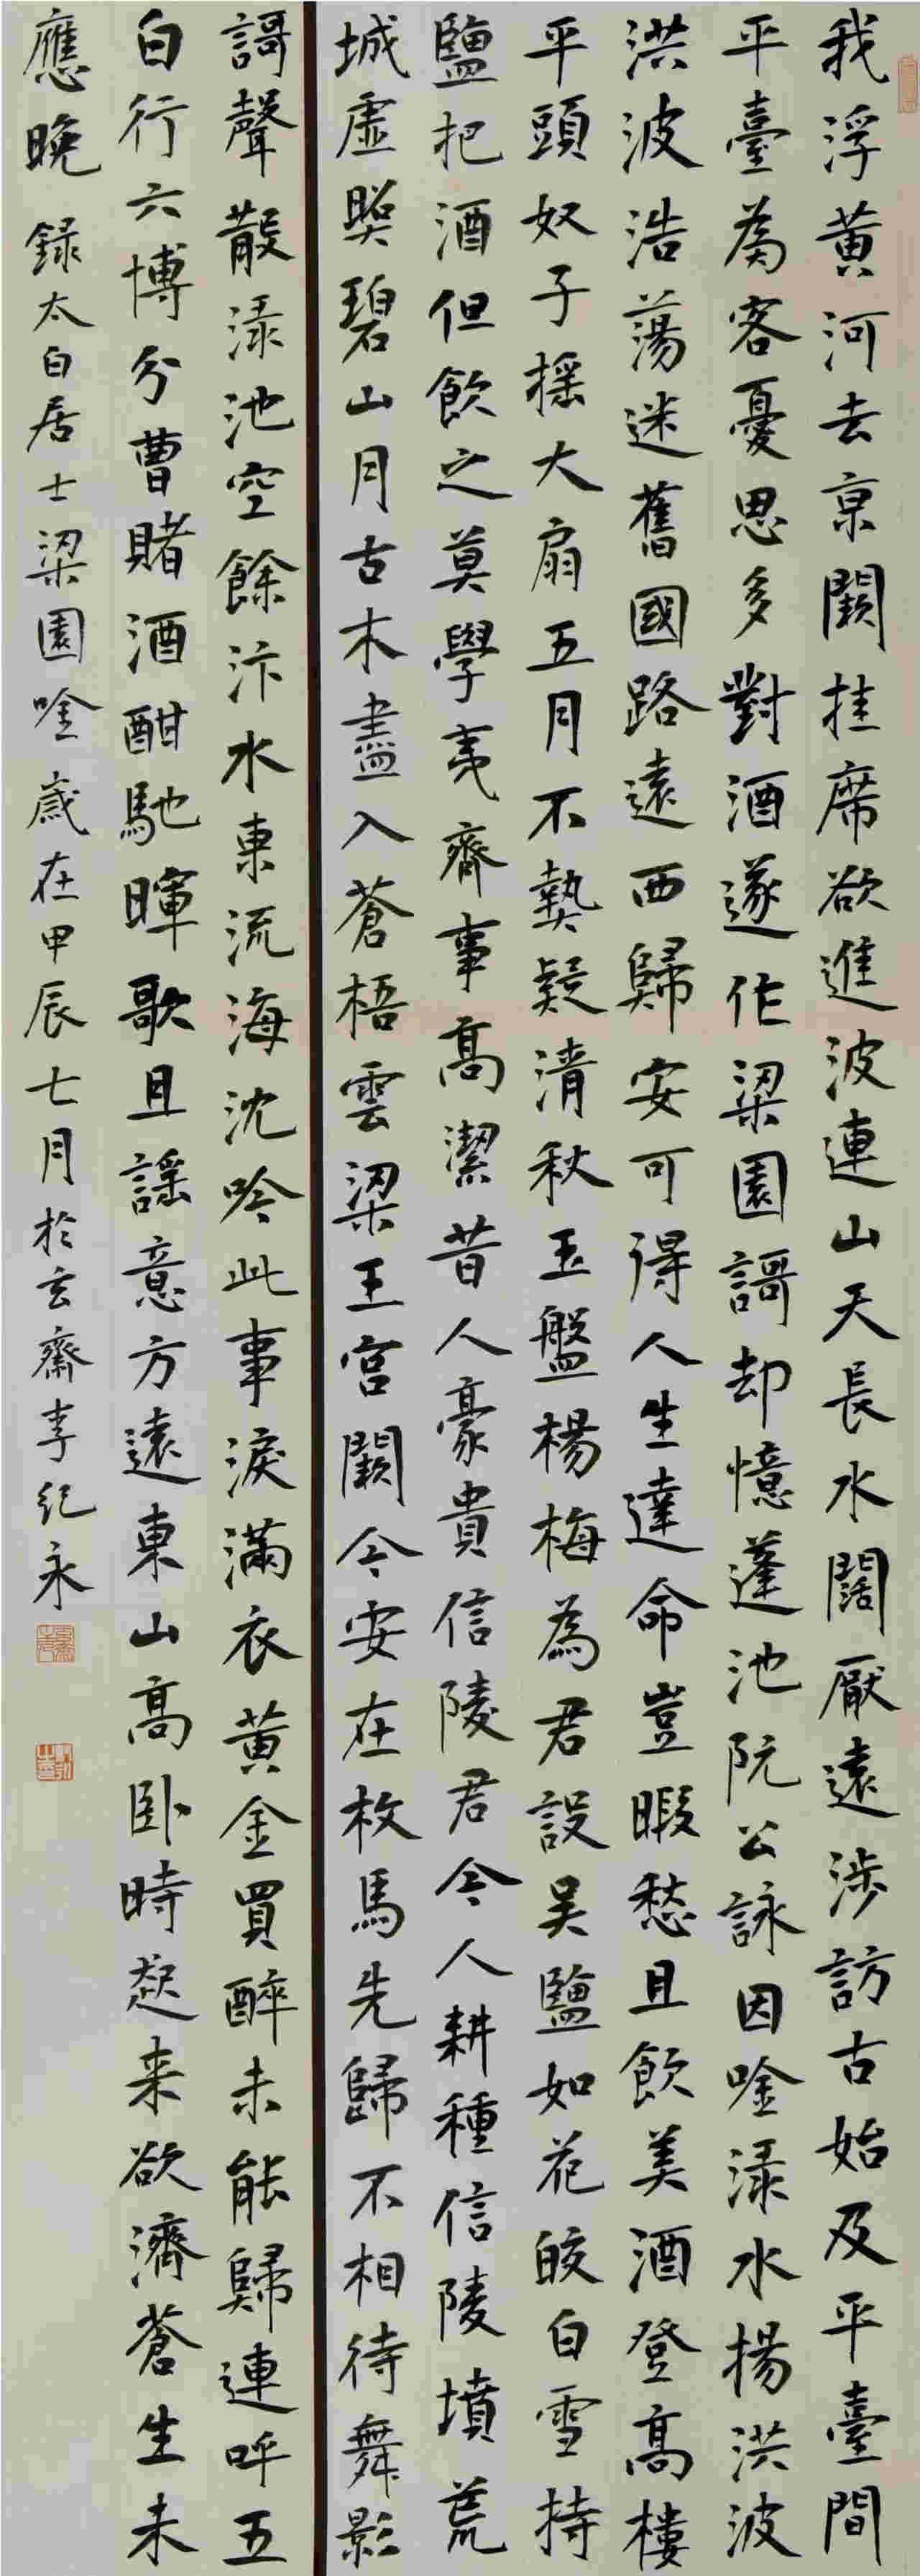 我浮黃河去京闕挂席欲進波連山天長水闊厭遠涉訪古始及平臺間
平臺為客憂思多對酒遂作梁園謌却憶蓬池阮公詠因唫渌水揚洪波
洪波浩蕩迷舊國路遠西歸安可得人生達命豈暇愁且飲美酒登高樓
平頭奴子搖大扇五月不熱疑清秋玉盤楊梅為君設吴鹽如花皎白雪持
鹽把酒但飲之莫學夷齊事高潔昔人豪貴信陵君今人耕種信陵墳荒
城虛照碧山月古木盡入蒼梧雲梁王宮闕今安在枚馬先歸不相待舞影
謌聲散渌池空餘汴水東流海沈吟此事淚滿衣黃金買醉未能歸連呼五
白行六博分曹賭酒酣馳暉歌且謠意方遠東山高卧時起来欲濟蒼生未
應晚 録太白居士梁園唫歲在甲辰七月於玄齋李紀永